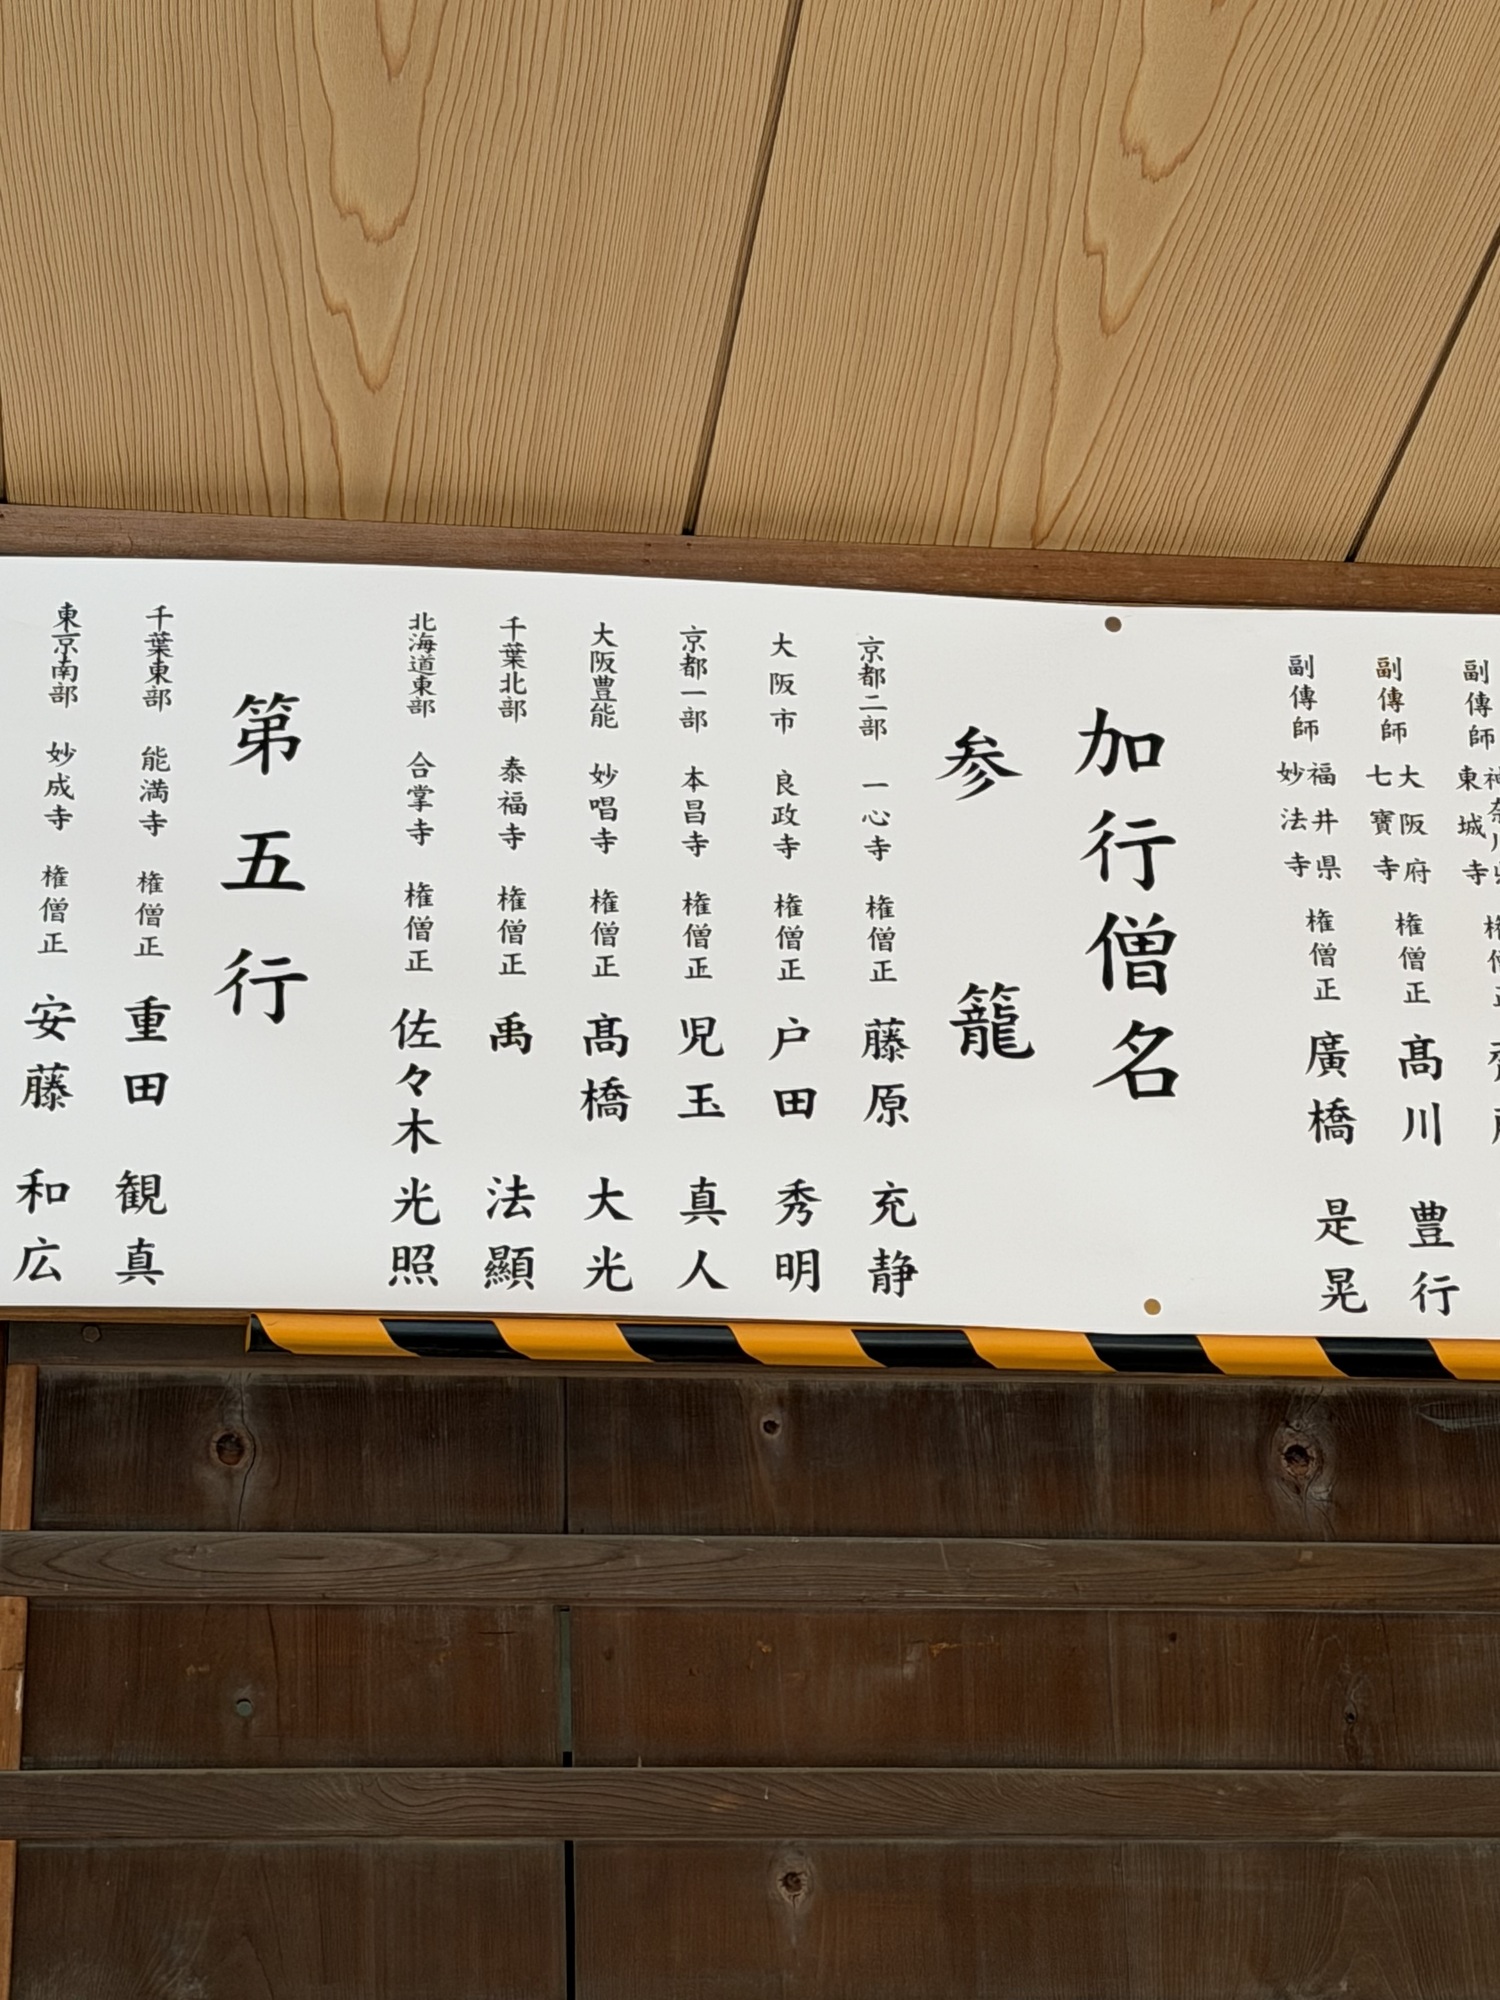 副傳師 東城寺 権僧正
副傳師 大阪府 七寶寺 権僧正 髙川 豊行
副傳師 福井県 妙法寺 権僧正 廣橋 是晃
加行僧名
参籠
京都二部 一心寺 権僧正 藤原 充静
大阪市 良政寺 権僧正 戸田 秀明
京都一部 本昌寺 権僧正 児玉 真人
大阪豊能 妙唱寺 権僧正 髙橋 大光
千葉北部 泰福寺 権僧正 禹 法顯
北海道東部 合掌寺 権僧正 佐々木 光照
第五行
千葉東部 能満寺 権僧正 重田 観真
東京南部 妙成寺 権僧正 安藤 和広